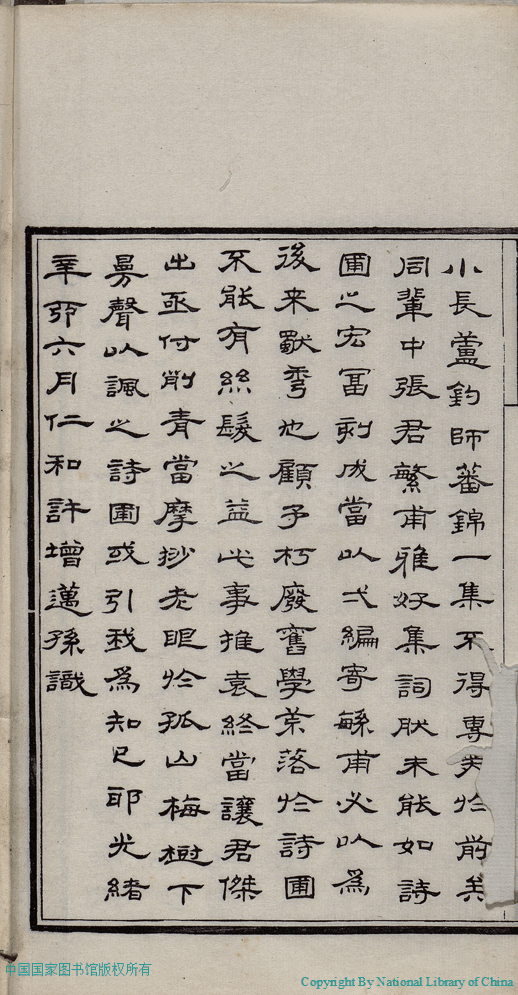 小長蘆釣師蕃錦一集不得專美於前矣
同輩中張君繁甫雅好集詞肰未能如詩
圃之宏富剞成當以弌編寄緐甫必以為
後来獸雩也顧予朽廢舊學荒落於詩圃
不能有絲髮之益此事推袁終當讓君傑
出亟付削青當摩抄老眼於孤山梅樹下
曼聲以諷之詩圃或引我為知己耶光緒
辛卯六月仁和許增邁孫識
中国国家图书馆版权所有
Copyright By National Library of China